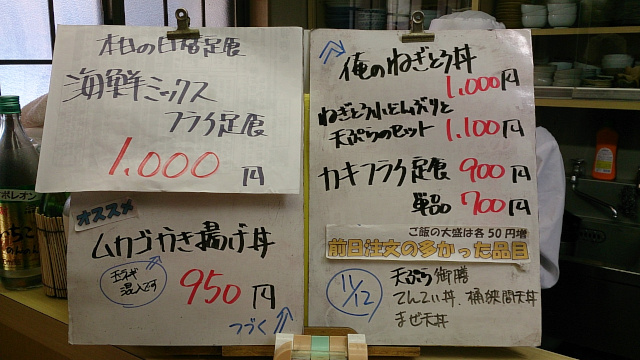 本日の日替定食
海鮮ミックス
フライ定食
1.000円
オススメ
ムカゴかき揚げ丼
玉ネギ
混入です
950円
つづく
俺のねぎとろ丼
1.000円
ねぎとろ小どんぶりと
天ぷらのセット 1.100円
カキフライ定食 900円
単品 700円
ご飯の大盛は各50円増
前日注文の多かった品目
11/12
天ぷら御膳
てんてい丼、桶狭間天丼
まぜ天丼
ポレオン